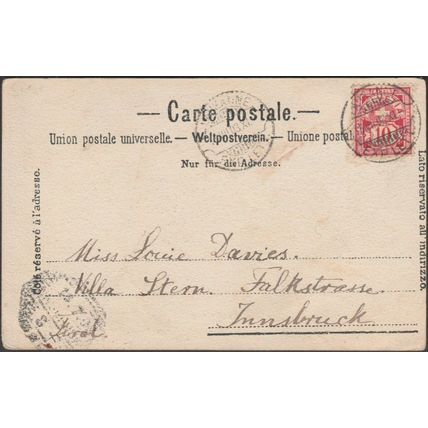 — Carte postale. —
Union postale universelle. — Weltpostverein. — Unione postal
Nur für die Adresse.
Côté réservé à l'adresse.
Lato riservato all'indirizzo.
10
Miss Louie Davies.
Villa Stern Falkstrasse.
Innsbruck
Tirol.